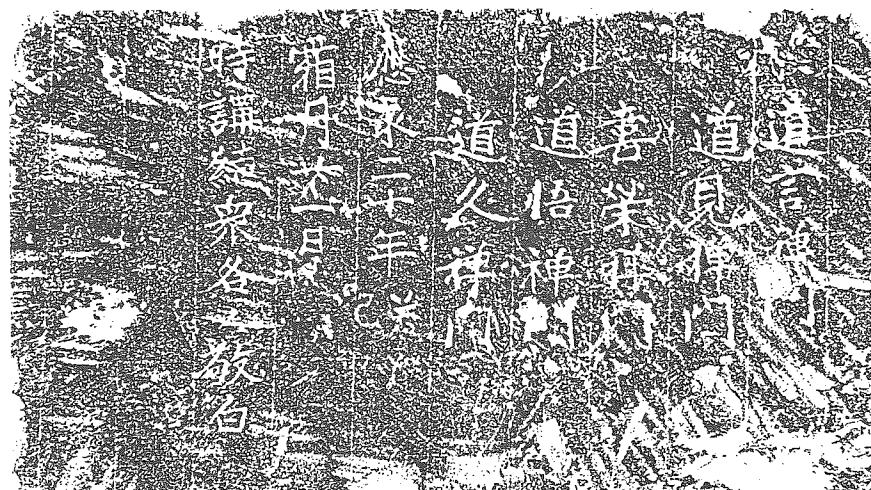 道言禅門
道見禅門
喜栄禅門
道悟禅門
道久禅門
應永二十年癸巳
霜月廿一日
時講結衆各々敬白